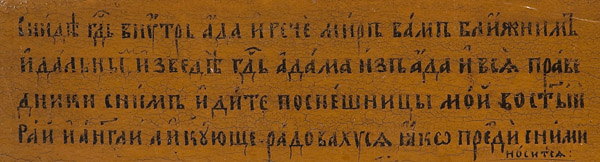 Сни́де гдⷭ҇ь внꙋ́трь а́да и рече ми́ръ ва́мъ бли́жнимъ
и҆ да́льны̑ и҆зведѐ гдⷭ҇ь а҆да́ма и҆зъ а҆́да и҆ всѧ̑ пра́ве
дники с ни́мъ и҆ди́те поспѣшницы мои̑ во ст҃ый
ра́й и҆ а҆́нг҃ли ликꙋюще ра́довахꙋсѧ ꙗ҆́кѡ пре́ди с ни́ми
но́ситсѧ: